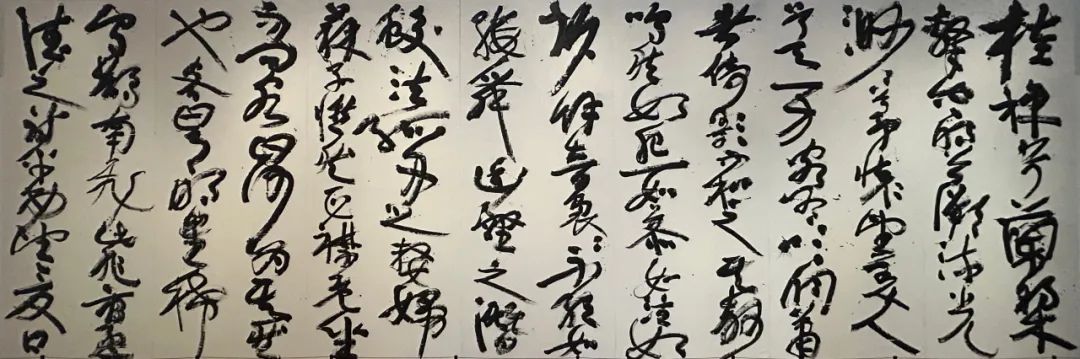 桂棹兮蘭槳
擊空明兮溯流光
渺渺兮予懷望美人
兮天一方客有吹洞簫
者倚歌而和之其聲
嗚嗚然如怨如慕如泣如
訴餘音裊裊不絕如
縷舞幽壑之潛
蛟泣孤舟之嫠婦
蘇子愀然正襟危坐
而問客曰何為其然
也客曰月明星稀
烏鵲南飛此非曹孟
德之詩乎西望夏口